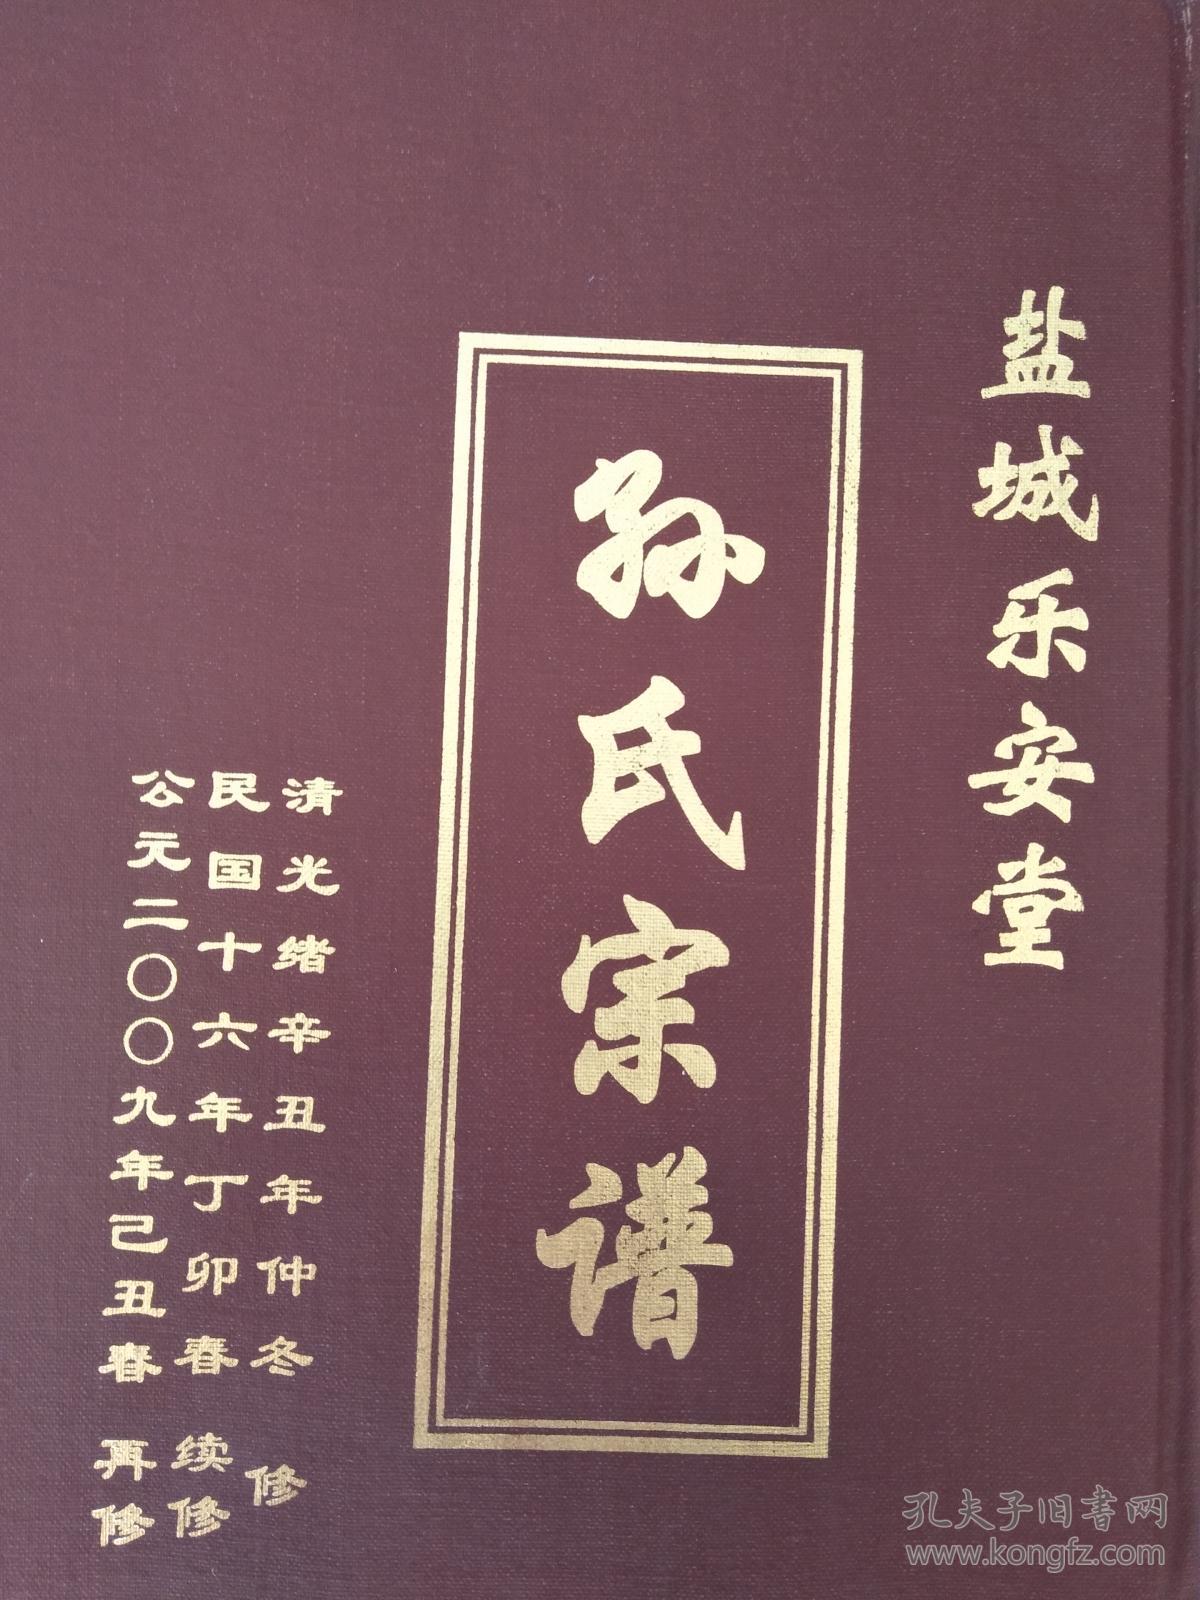 盐城乐安堂
孙氏宗谱
清光绪辛丑年仲冬 修
民国十六年丁卯春 续修
公元二〇〇九年己丑春 再修
孔夫子旧书网
www.kongfz.com